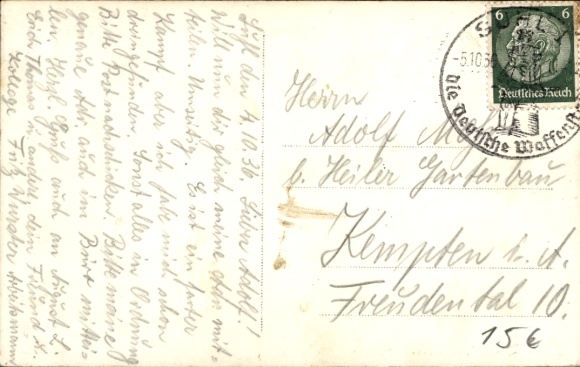 Suhl den 4.10.36. Lieber Adolf!
Will nun dir gleich meine Adr. mit-
teilen. Es ist ein harter
Kampf aber ich habe mich schon
dreingefunden. Sonst alles in Ordnung
Bitte Post nachschicken. Bitte meine
genaue Adr. auch im Büro mittei-
len. Herzl. Gruß auch an August L.
Erich Thomas u. andere dein Freund u.
Kollege Fritz
6 6
Deutsches Reich
SUHL 1
-5.10.36
die deutsche Waffenst
Herrn
Adolf
b. Heiler Gartenbau
Kempten i. A.
Freudental 10.
15€